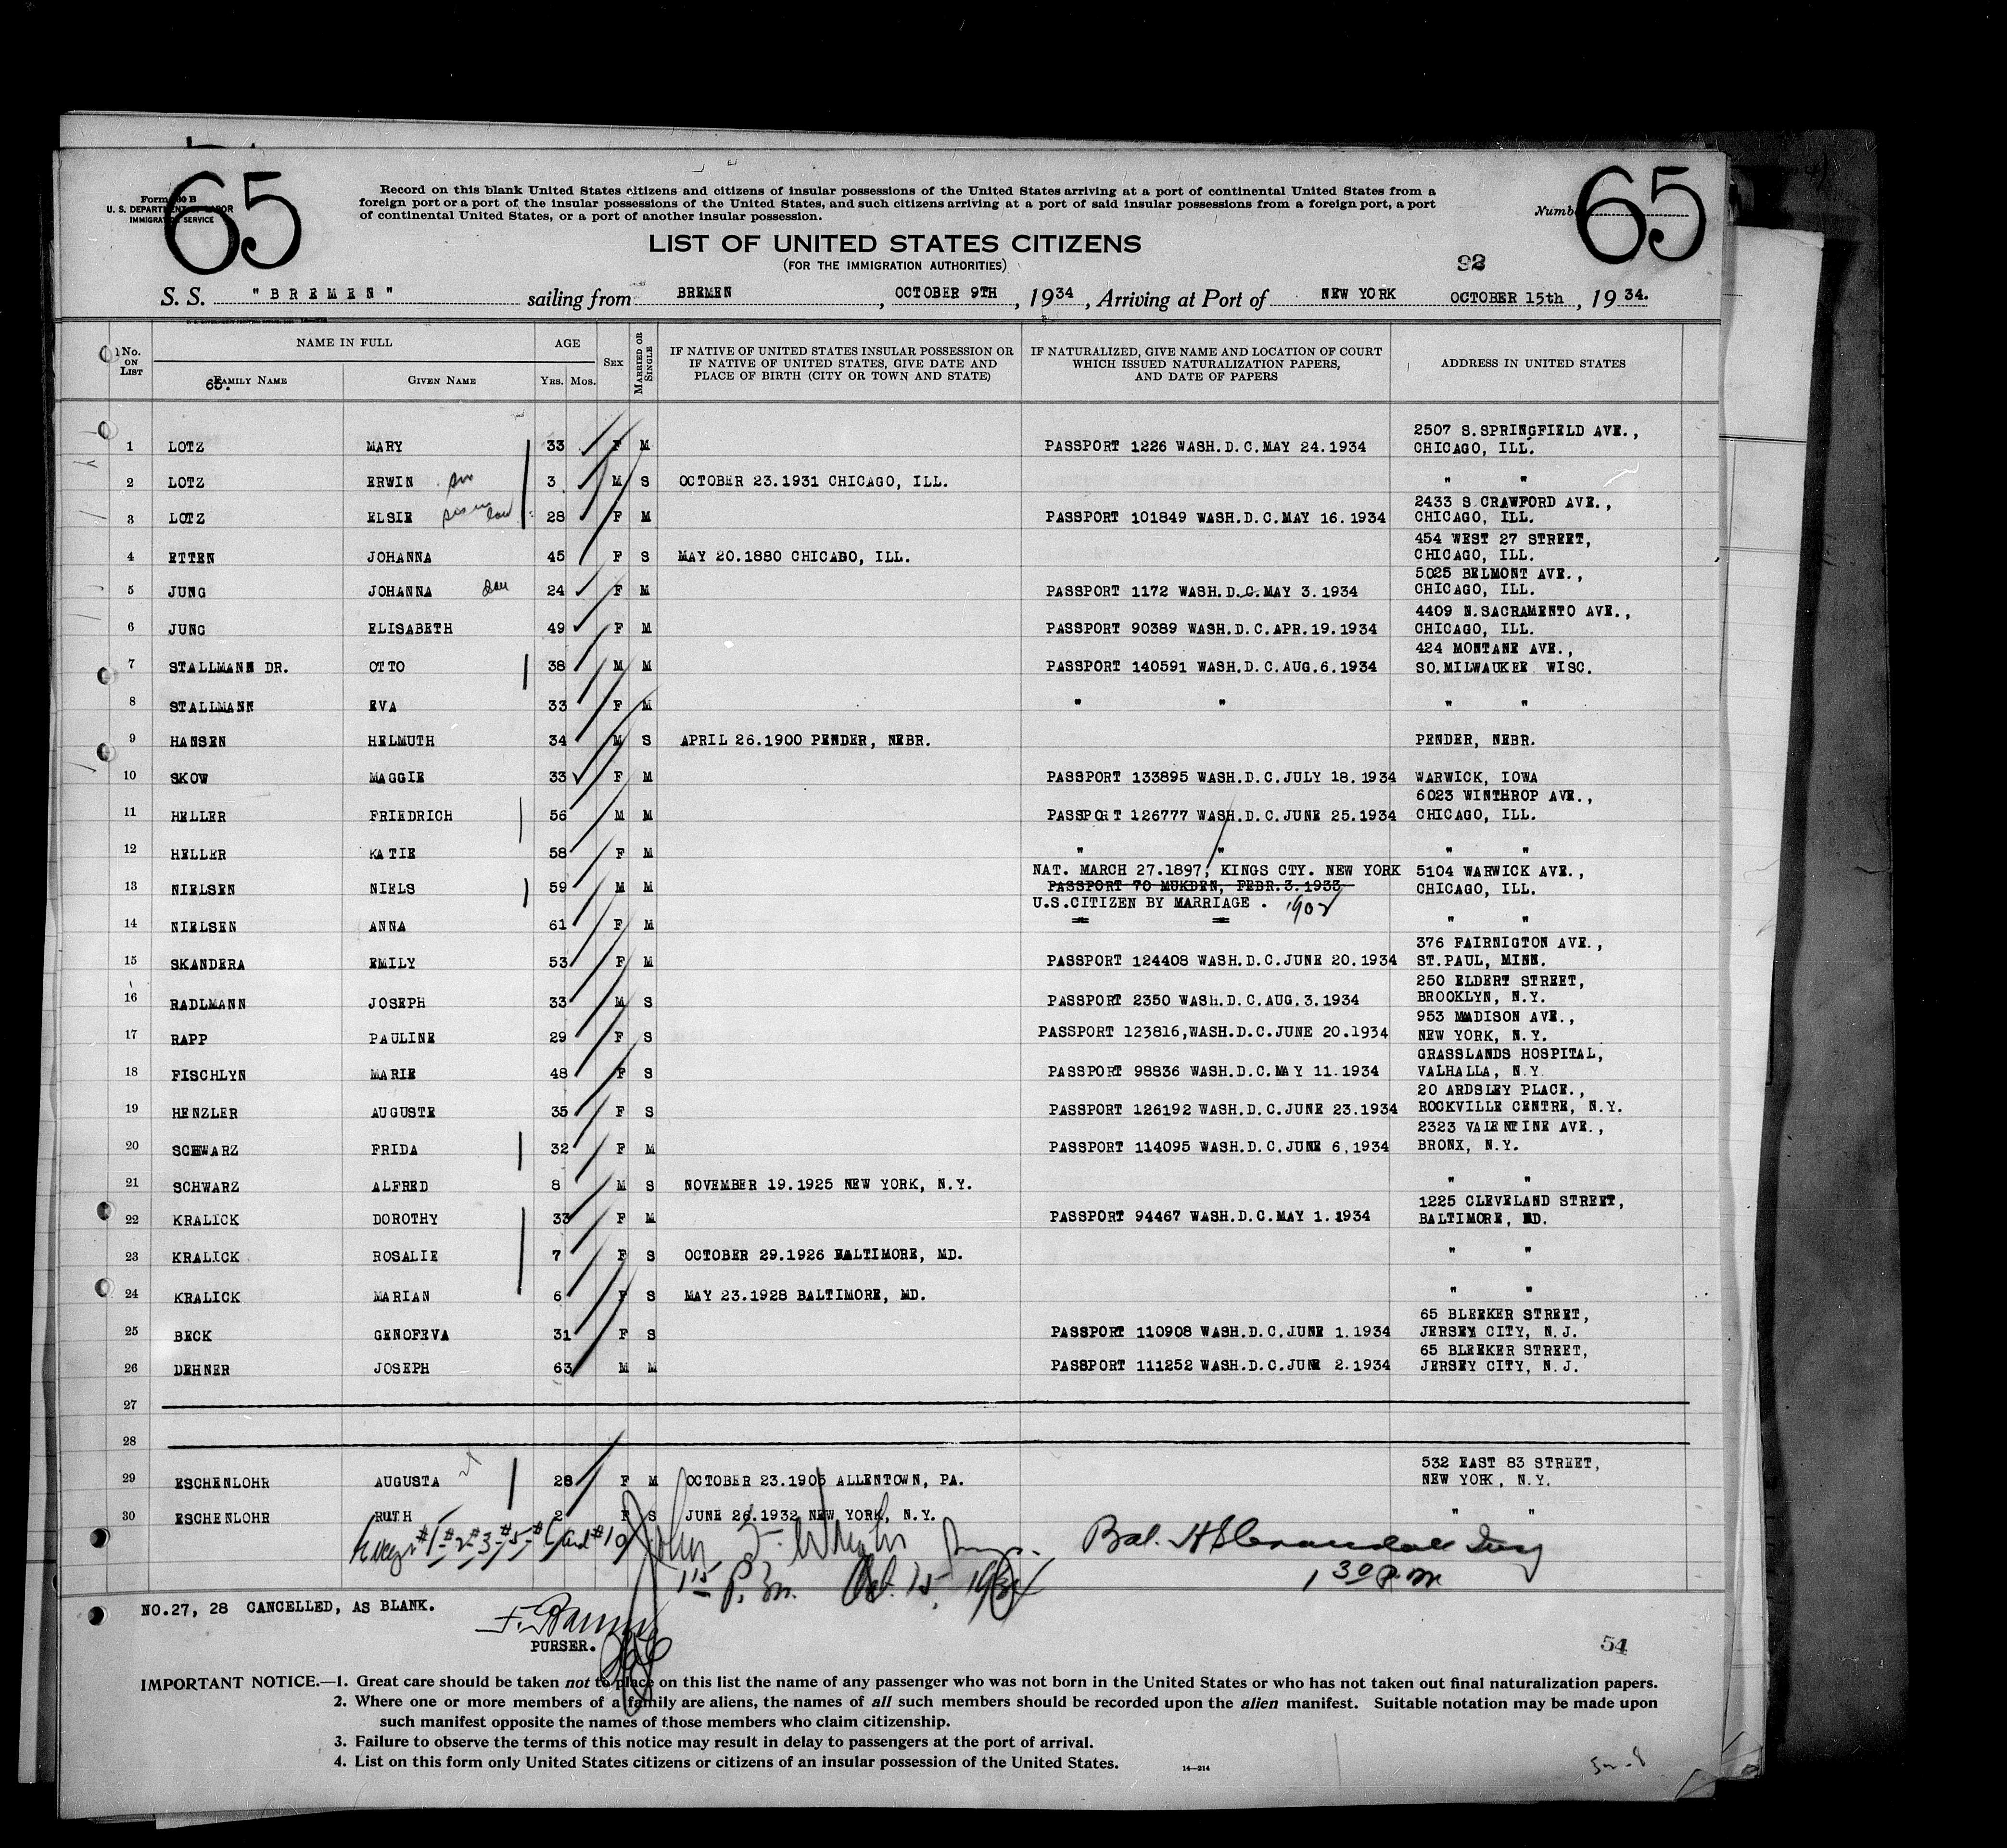 65
65
Form 630 B
U. S. DEPARTMENT OF LABOR
IMMIGRATION SERVICE
Record on this blank United States citizens and citizens of insular possessions of the United States arriving at a port of continental United States from a
foreign port or a port of the insular possessions of the United States, and such citizens arriving at a port of said insular possessions from a foreign port, a port
of continental United States, or a port of another insular possession.
Number
LIST OF UNITED STATES CITIZENS
(FOR THE IMMIGRATION AUTHORITIES)
92
S. S. "BREMEN" sailing from BREMEN, OCTOBER 9TH, 1934, Arriving at Port of NEW YORK OCTOBER 15th, 1934.
No. ON LIST NAME IN FULL AGE SEX MARRIED OR SINGLE IF NATIVE OF UNITED STATES INSULAR POSSESSION OR IF NATIVE OF UNITED STATES, GIVE DATE AND PLACE OF BIRTH (CITY OR TOWN AND STATE) IF NATURALIZED, GIVE NAME AND LOCATION OF COURT WHICH ISSUED NATURALIZATION PAPERS, AND DATE OF PAPERS ADDRESS IN UNITED STATES
65. FAMILY NAME GIVEN NAME YRS. MOS.
2507 S.SPRINGFIELD AVE.,
1 LOTZ MARY 33 F M PASSPORT 1226 WASH.D.C.MAY 24.1934 CHICAGO, ILL.
2 LOTZ ERWIN son 3 M S OCTOBER 23.1931 CHICAGO, ILL. " "
2433 S.CRAWFORD AVE.,
3 LOTZ ELSIE sis in law 28 F M PASSPORT 101849 WASH.D.C.MAY 16.1934 CHICAGO, ILL.
454 WEST 27 STREET,
4 ETTEN JOHANNA 45 F S MAY 20.1880 CHICAGO, ILL. CHICAGO, ILL.
5025 BELMONT AVE.,
5 JUNG JOHANNA dau 24 F M PASSPORT 1172 WASH.D.C.MAY 3.1934 CHICAGO, ILL.
4409 N.SACRAMENTO AVE.,
6 JUNG ELISABETH 49 F M PASSPORT 90389 WASH.D.C.APR.19.1934 CHICAGO, ILL.
424 MONTANE AVE.,
7 STALLMANN DR. OTTO 38 M M PASSPORT 140591 WASH.D.C.AUG.6.1934 SO.MILWAUKEE WISC.
8 STALLMANN EVA 33 F M " " " "
9 HANSEN HELMUTH 34 M S APRIL 26.1900 PENDER, NEBR. PENDER, NEBR.
10 SKOW MAGGIE 33 F M PASSPORT 133895 WASH.D.C.JULY 18.1934 WARWICK, IOWA
6023 WINTHROP AVE.,
11 HELLER FRIEDRICH 56 M M PASSPORT 126777 WASH.D.C.JUNE 25.1934 CHICAGO, ILL.
12 HELLER KATIE 58 F M " " " "
NAT. MARCH 27.1897, KINGS CTY. NEW YORK 5104 WARWICK AVE.,
13 NIELSEN NIELS 59 M M PASSPORT 70 MUKDEN, FEBR.3.1933 CHICAGO, ILL.
U.S.CITIZEN BY MARRIAGE . 1902
14 NIELSEN ANNA 61 F M " " " "
376 FAIRNIGTON AVE.,
15 SKANDERA EMILY 53 F M PASSPORT 124408 WASH.D.C.JUNE 20.1934 ST.PAUL, MINN.
250 ELDERT STREET,
16 RADLMANN JOSEPH 33 M S PASSPORT 2350 WASH.D.C.AUG.3.1934 BROOKLYN, N.Y.
953 MADISON AVE.,
17 RAPP PAULINE 29 F S PASSPORT 123816,WASH.D.C.JUNE 20.1934 NEW YORK, N.Y.
GRASSLANDS HOSPITAL,
18 FISCHLYN MARIE 48 F S PASSPORT 98836 WASH.D.C.MAY 11.1934 VALHALLA, N.Y.
20 ARDSLEY PLACE.,
19 HENZLER AUGUSTE 35 F S PASSPORT 126192 WASH.D.C.JUNE 23.1934 ROCKVILLE CENTRE, N.Y.
2323 VALENTINE AVE.,
20 SCHWARZ FRIDA 32 F M PASSPORT 114095 WASH.D.C.JUNE 6.1934 BRONX, N.Y.
21 SCHWARZ ALFRED 8 M S NOVEMBER 19.1925 NEW YORK, N.Y. " "
1225 CLEVELAND STREET,
22 KRALICK DOROTHY 33 F M PASSPORT 94467 WASH.D.C.MAY 1.1934 BALTIMORE, MD.
23 KRALICK ROSALIE 7 F S OCTOBER 29.1926 BALTIMORE, MD. " "
24 KRALICK MARIAN 6 F S MAY 23.1928 BALTIMORE, MD. " "
65 BLEEKER STREET,
25 BECK GENOFEVA 31 F S PASSPORT 110908 WASH.D.C.JUNE 1.1934 JERSEY CITY, N.J.
65 BLEEKER STREET,
26 DEHNER JOSEPH 63 M M PASSPORT 111252 WASH.D.C.JUNE 2.1934 JERSEY CITY, N.J.
27
28
532 EAST 83 STREET,
29 ESCHENLOHR AUGUSTA 28 F M OCTOBER 23.1905 ALLENTOWN, PA. NEW YORK, N.Y.
30 ESCHENLOHR RUTH 2 F S JUNE 26.1932 NEW YORK, N.Y. " "
#1 #2 #3 #5 #6 and #10 John Bal.
1 15 P.M. Oct. 15, 1934 1 30 P.M
NO.27, 28 CANCELLED, AS BLANK.
PURSER.
54
IMPORTANT NOTICE.—1. Great care should be taken not to place on this list the name of any passenger who was not born in the United States or who has not taken out final naturalization papers.
2. Where one or more members of a family are aliens, the names of all such members should be recorded upon the alien manifest. Suitable notation may be made upon
such manifest opposite the names of those members who claim citizenship.
3. Failure to observe the terms of this notice may result in delay to passengers at the port of arrival.
4. List on this form only United States citizens or citizens of an insular possession of the United States.
14—214